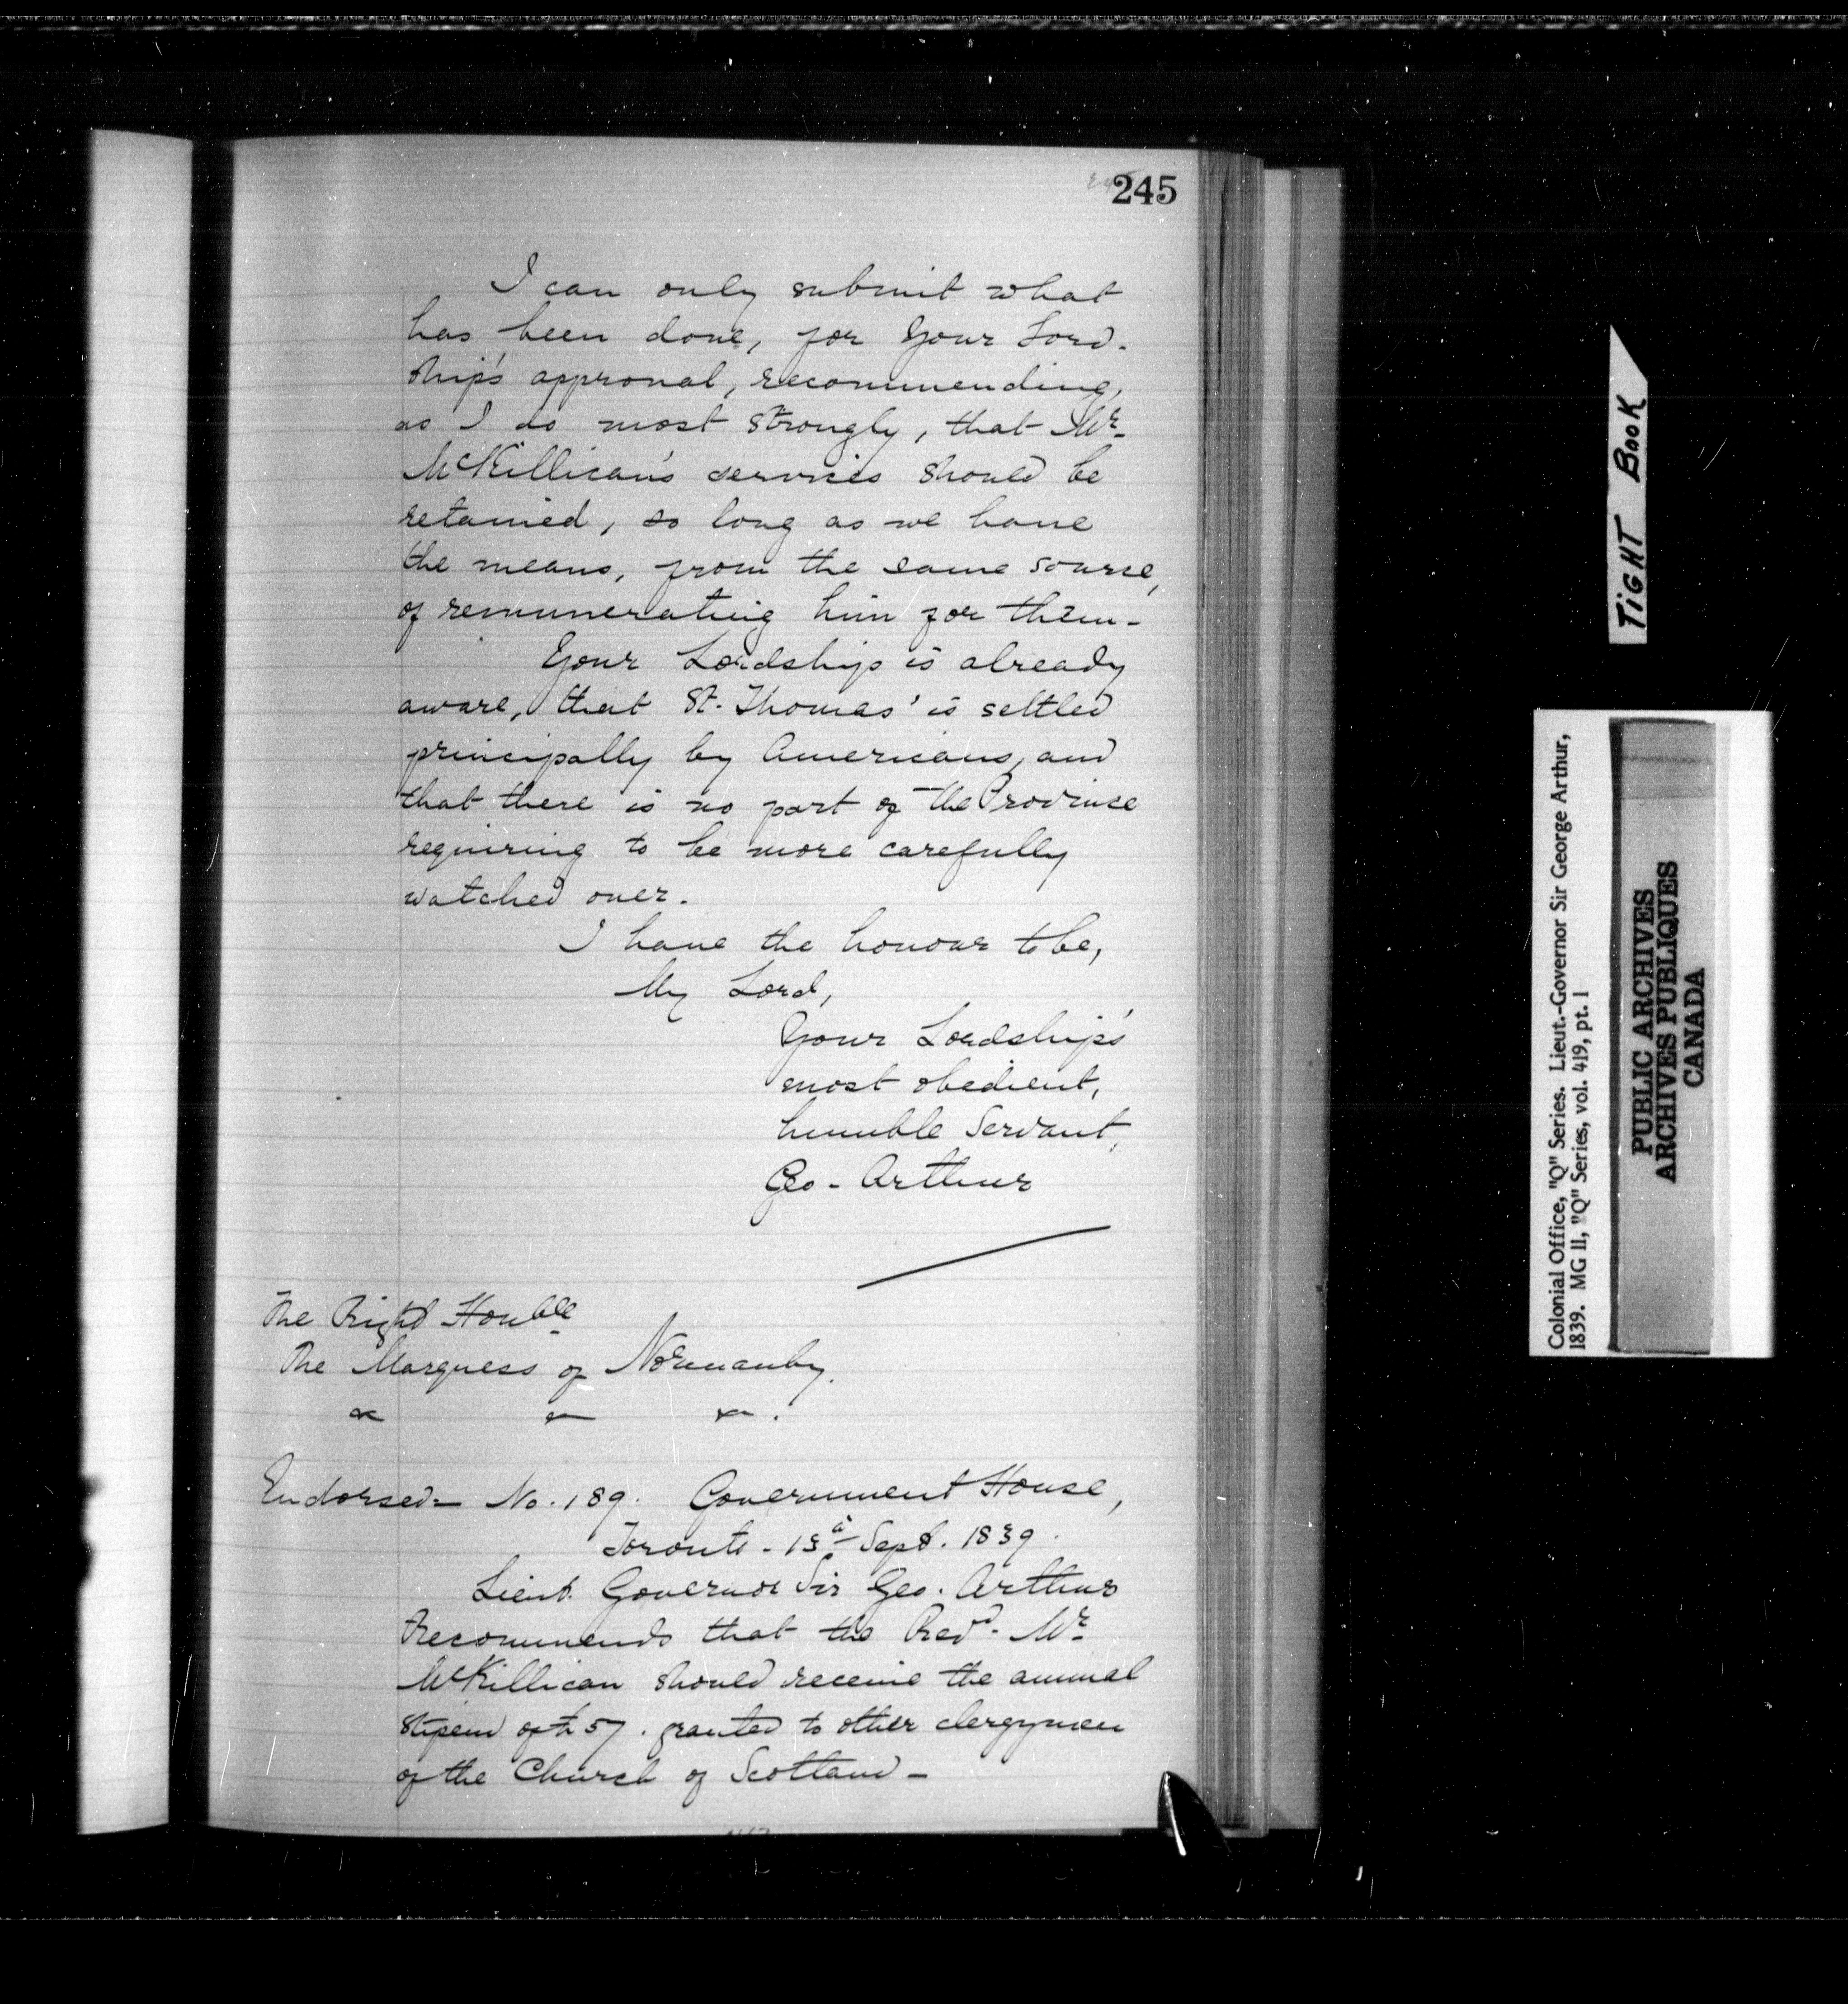 245
I can only submit what
has been done, for Your Lord-
ship's approval, recommending,
as I do most strongly, that Mr.
McKillican's services should be
retained, so long as we have
the means, from the same source,
of remunerating him for them-
Your Lordship is already
aware, that St. Thomas' is settled
principally by Americans, and
that there is no part of the Province
requiring to be more carefully
watched over.
I have the honour to be,
My Lord,
Your Lordship's
most obedient,
humble Servant,
Geo. Arthur
The Right Honble
The Marquess of Normanby.
Endorsed- No. 189. Government House,
Toronto - 13th Sept. 1839.
Lieut. Governor Sir Geo. Arthur
Recommends that the Revd. Mr.
McKillican should receive the annual
stipend of £57. granted to other clergymen
of the Church of Scotland-
TIGHT BOOK
Colonial Office, "Q" Series. Lieut.-Governor Sir George Arthur,
1839. MG 11, "Q" Series, vol. 419, pt. 1
PUBLIC ARCHIVES
ARCHIVES PUBLIQUES
CANADA